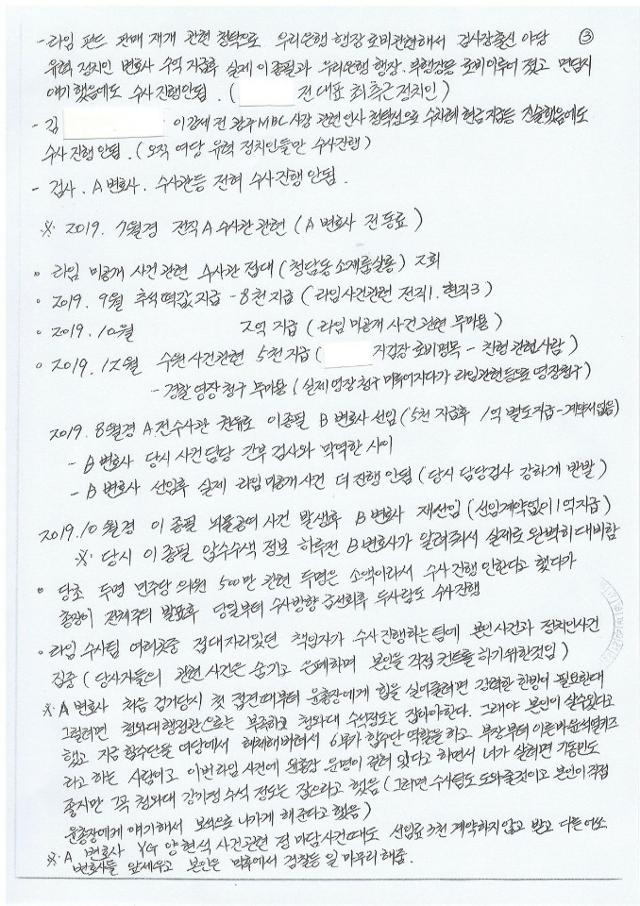 ③
- 라임 펀드 판매 재개 관련 청탁으로 우리은행 행장 로비관련해서 검사장출신 야당
유력 정치인 변호사 수억 지급후 실제 이종필과 우리은행 행장, 부행장등 로비이루어 졌고 면담시
얘기했음에도 수사 진행안됨. ( 전 대표 최측근 정치인 )
- 김 이강제 전 광주MBC사장 관련 인사 청탁성으로 수차례 현금지급등 진술했음에도
수사 진행 안됨. ( 오직 여당 유력 정치인들만 수사진행 )
- 검사. A변호사. 수사관등 전혀 수사진행 안됨.
※ 2019. 7월경 전직 A수사관 관련 ( A변호사 전 동료 )
◦ 라임 미공개 사건관련 수사관 접대 ( 청담동 소재룸살롱 ) 2회
◦ 2019. 9월 추석떡값지급 - 8천 지급 ( 라임사건관련 전직1. 현직3 )
◦ 2019. 10월 2억 지급 ( 라임 미공개 사건관련 무마용 )
◦ 2019. 12월 수원사건관련 5천지급 ( 지검장 로비명목 - 친형 관련사람 )
- 경찰 영장 청구 무마용 ( 실제 영장 청구 미루어지다가 라임관련등으로 영장청구 )
2019. 8월경 A전수사관 이종필 B변호사 선임 ( 5천 지급후 1억 별도지급 - 계약서없음 )
- B변호사 당시 사건담당 간부 검사와 막역한 사이
- B변호사 선임후 실제 라임 미공개사건 더 진행 안됨 ( 당시 담당검사 강하게 반발 )
2019. 10월경 이종필 뇌물공여 사건 발생후 B변호사 재선임 ( 선임계약없이 1억지급 )
※ 당시 이종필 압수수색 정보 하루전 B변호사가 알려줘서 실제로 완벽히 대비함
◦ 당초 두명 민주당 의원 500만 관련 두명은 소액이라서 수사 진행 안한다고 했다가
총장이 전체주의 발표후 당일부터 수사방향 급선회후 두사람도 수사진행
◦ 라임 수사팀 여러곳중 접대 자리있던 책임자가 수사 진행하는 팀에 본인 사건과 정치인사건
집중 ( 당사자들의 관련 사건은 숨기고 은폐하며 본인을 직접 컨트롤 하기 위한것임 )
※ A변호사 처음 검거당시 첫 접견 때부터 윤총장에게 힘을 실어줄려면 강력한 한방이 필요한데
그럴려면 청와대 행정관으로는 부족하고 청와대 수석정도는 잡아야한다. 그래야 본인이 살수있다고
했고 지금 합수단을 여당에서 해체해버려서 6부가 합수단 역할을 하고 부장부터 이른바 윤석열키즈
라고 하는 사람이고 이번 라임 사건에 윤총장 운명이 걸려 있다고 하면서 너가 살려면 기동민도
좋지만 꼭 청와대 강기정 수석 정도는 잡으라고 했음 ( 그러면 수사팀도 도와줄것이고 본인이 직접
윤총장에게 얘기해서 보석으로 나가게 해준다고 했음 )
※ A 변호사 YG 양현석 사건관련 정 마담사건때도 선임료 3천 계약하지않고 받고 다른
변호사들 앞세우고 본인은 막후에서 검찰등 일 마무리 해줌.